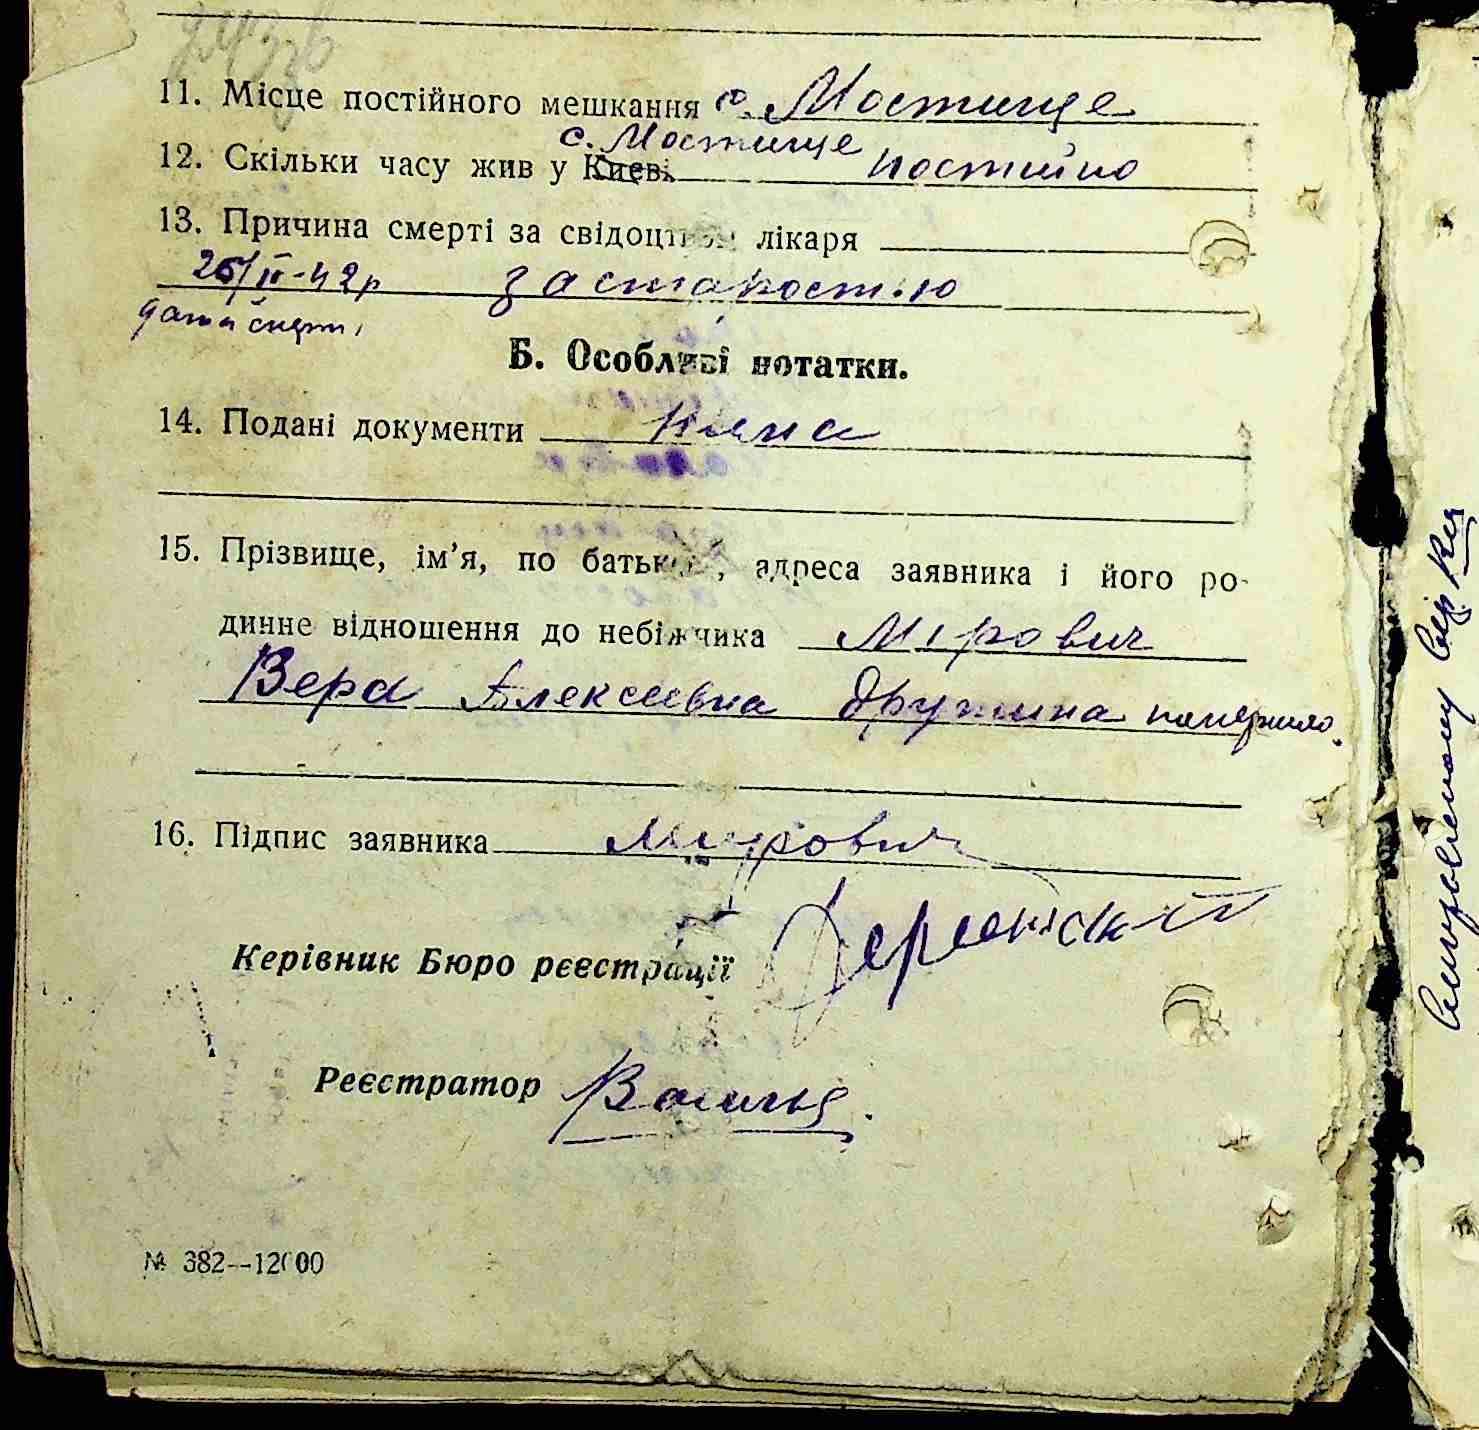 11. Місце постійного мешкання с. Мостище
с. Мостище
12. Скільки часу жив у Києві постійно
13. Причина смерті за свідоцтвом лікаря
26/II-42р за старостью
дата смерті
Б. Особливі нотатки.
14. Подані документи
15. Прізвище, ім’я, по батькові, адреса заявника і його ро-
динне відношення до небіжчика Мірович
Вера Алексеевна дружина
16. Підпис заявника Мирович
Керівник Бюро реєстрації
Реєстратор
№ 382—12000